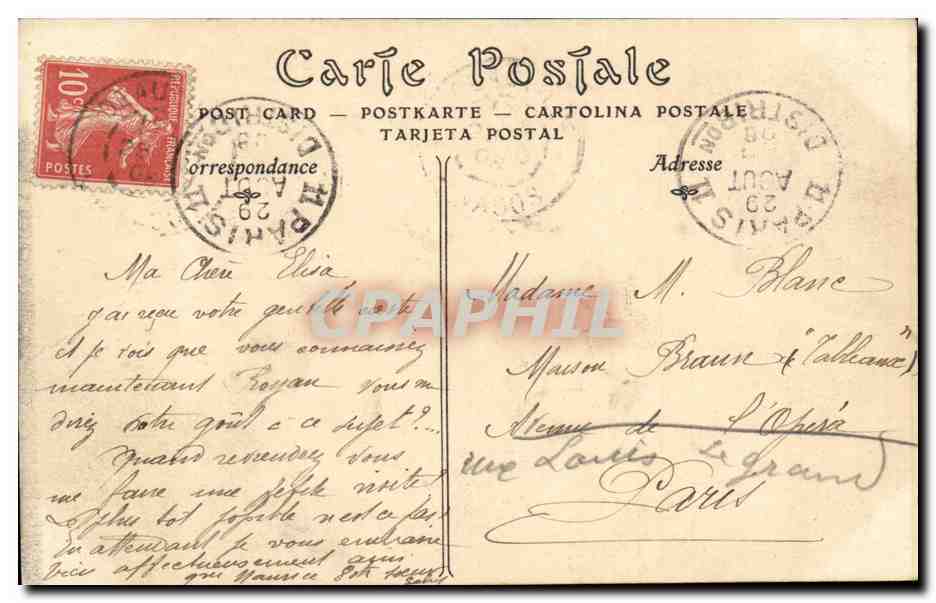 Carte Postale
POST CARD — POSTKARTE — CARTOLINA POSTALE
TARJETA POSTAL
10c
REPUBLIQUE FRANCAISE
POSTES
PARIS 11
DISTRIBON
29
AOUT
08
PARIS 11
DISTRIBON
29
AOUT
08
Correspondance
Adresse
CPAPHIL
Ma Chère Elisa
j'ai reçu votre gentille carte
et je vois que vous connaissez
maintenant Royan vous me
direz votre goût à ce sujet?...
Quand reviendrez vous
me faire une petite visite
le plus tôt possible n'est ce pas
En attendant je vous envoie
bien affectueusement ainsi
que Maurice
Madame M. Blanc
Maison Braun (Tableaux)
Avenue de l'Opéra
rue Louis Le grand
Paris